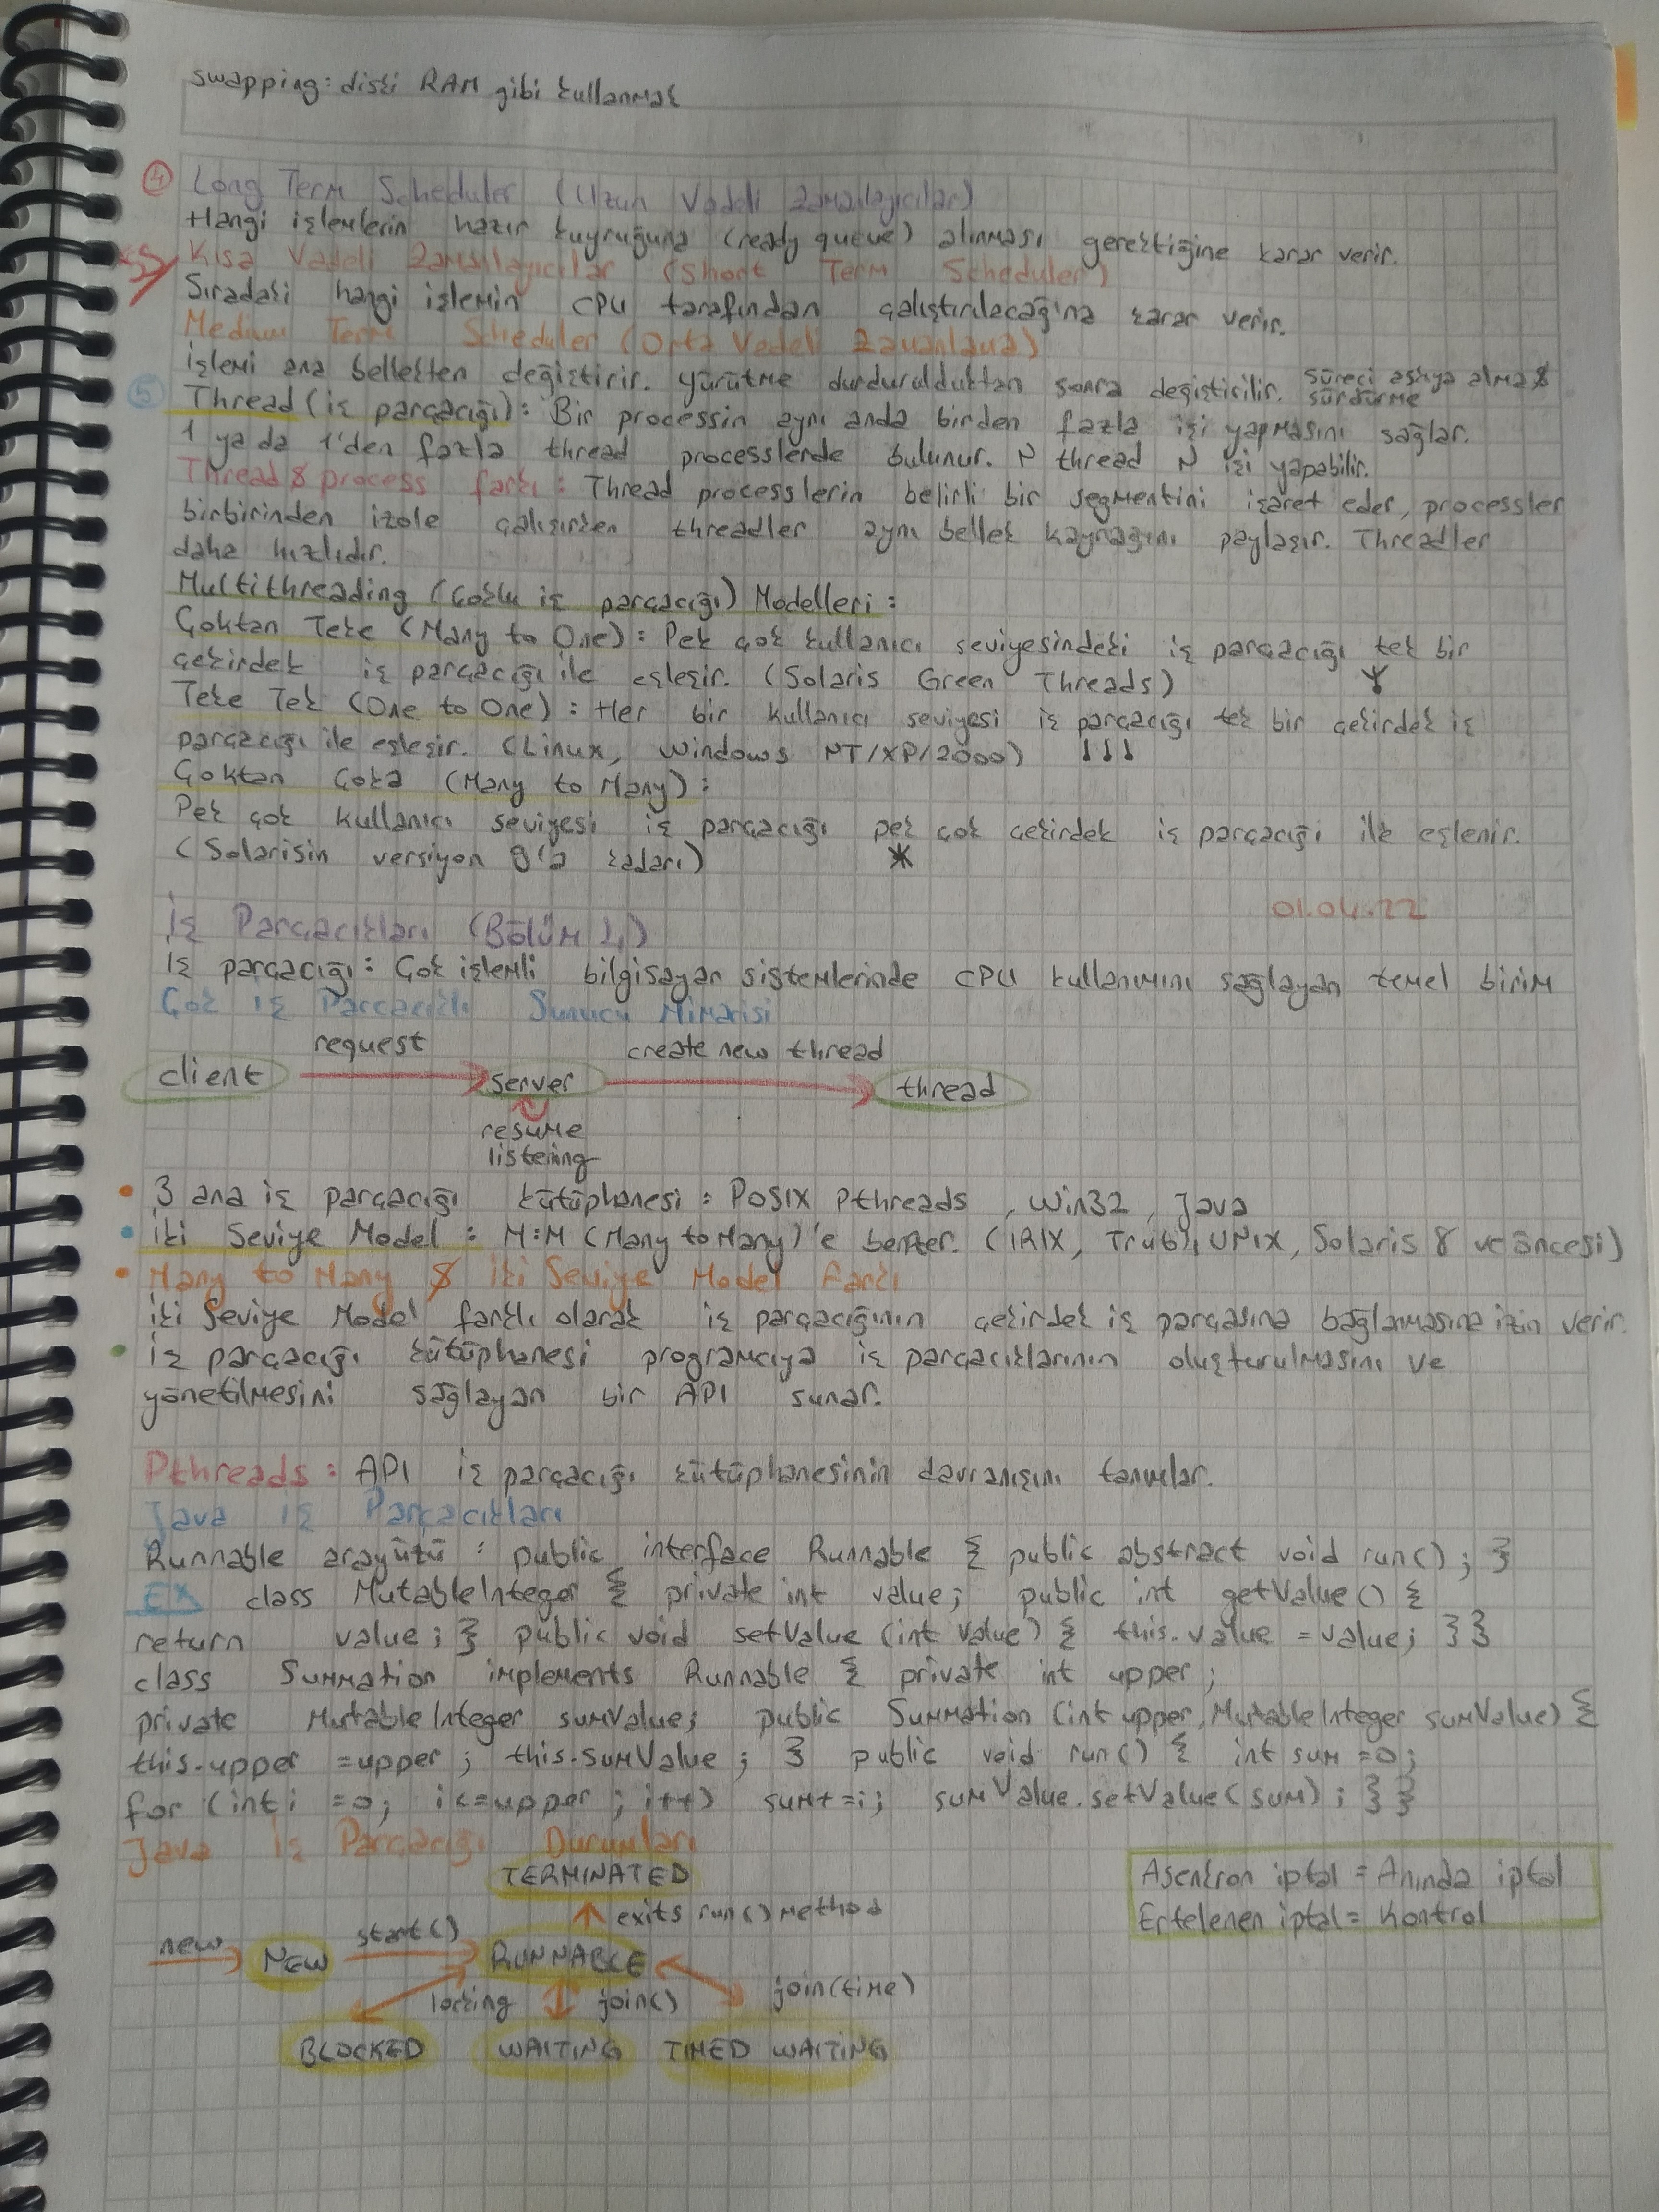 swapping: diski RAM gibi kullanmak
4 Long Term Scheduler (Uzun Vadeli Zamanlayıcılar)
Hangi işlemlerin hazır kuyruğuna (ready queue) alınması gerektiğine karar verir.
Kısa Vadeli Zamanlayıcılar (Short Term Scheduler)
Sıradaki hangi işlemin CPU tarafından çalıştırılacağına karar verir.
Medium Term Scheduler (Orta Vadeli Zamanlama)
işlemi ana bellekten değiştirir. yürütme durdurulduktan sonra değiştirilir. süreci askıya alma & sürdürme
5 Thread (iş parçacığı): Bir processin aynı anda birden fazla işi yapmasını sağlar.
1 ya da 1'den fazla thread processlerde bulunur. N thread N işi yapabilir.
Thread & process farkı: Thread processlerin belirli bir segmentini işaret eder, processler
birbirinden izole çalışırken threadler aynı bellek kaynağını paylaşır. Threadler
daha hızlıdır.
Multithreading (Çoklu iş parçacığı) Modelleri:
Çoktan Teke (Many to One): Pek çok kullanıcı seviyesindeki iş parçacığı tek bir
çekirdek iş parçacığı ile eşleşir. (Solaris Green Threads)
Teke Tek (One to One): Her bir kullanıcı seviyesi iş parçacığı tek bir çekirdek iş
parçacığı ile eşleşir. (Linux, Windows NT/XP/2000)
Çoktan Çoka (Many to Many):
Pek çok kullanıcı seviyesi iş parçacığı pek çok çekirdek iş parçacığı ile eşlenir.
(Solarisin versiyon 9'a kadarı)
01.04.22
İş Parçacıkları (Bölüm 4)
İş parçacığı: Çok işlemli bilgisayar sistemlerinde CPU kullanımını sağlayan temel birim
Çok İş Parçacıklı Sunucu Mimarisi
request create new thread
client server thread
resume
listening
• 3 ana iş parçacığı kütüphanesi: POSIX Pthreads, Win32, Java
• İki Seviye Model: M:M (Many to Many)'e benzer. (IRIX, Tru64 UNIX, Solaris 8 ve öncesi)
• Many to Many & iki Seviye Model Farkı
iki Seviye Model farklı olarak iş parçacığının çekirdek iş parçasına bağlanmasına izin verir.
• İş parçacığı kütüphanesi programcıya iş parçacıklarının oluşturulmasını ve
yönetilmesini sağlayan bir API sunar.
Pthreads: API iş parçacığı kütüphanesinin davranışını tanımlar.
Java İş Parçacıkları
Runnable arayüzü: public interface Runnable { public abstract void run(); }
EX class MutableInteger { private int value; public int getValue() {
return value; } public void setValue (int value) { this.value = value; }}
class Summation implements Runnable { private int upper;
private MutableInteger sumValue; public Summation (int upper, MutableInteger sumValue) {
this.upper = upper; this.sumValue; } public void run() { int sum = 0;
for (int i = 0; i <= upper; i++) sum += i; sumValue.setValue(sum); }}
Java İş Parçacığı Durumları
TERMINATED
exits run() method
new NEW start() RUNNABLE
locking join() join(time)
BLOCKED WAITING TIMED WAITING
Asenkron iptal = Anında iptal
Ertelenen iptal = Kontrol